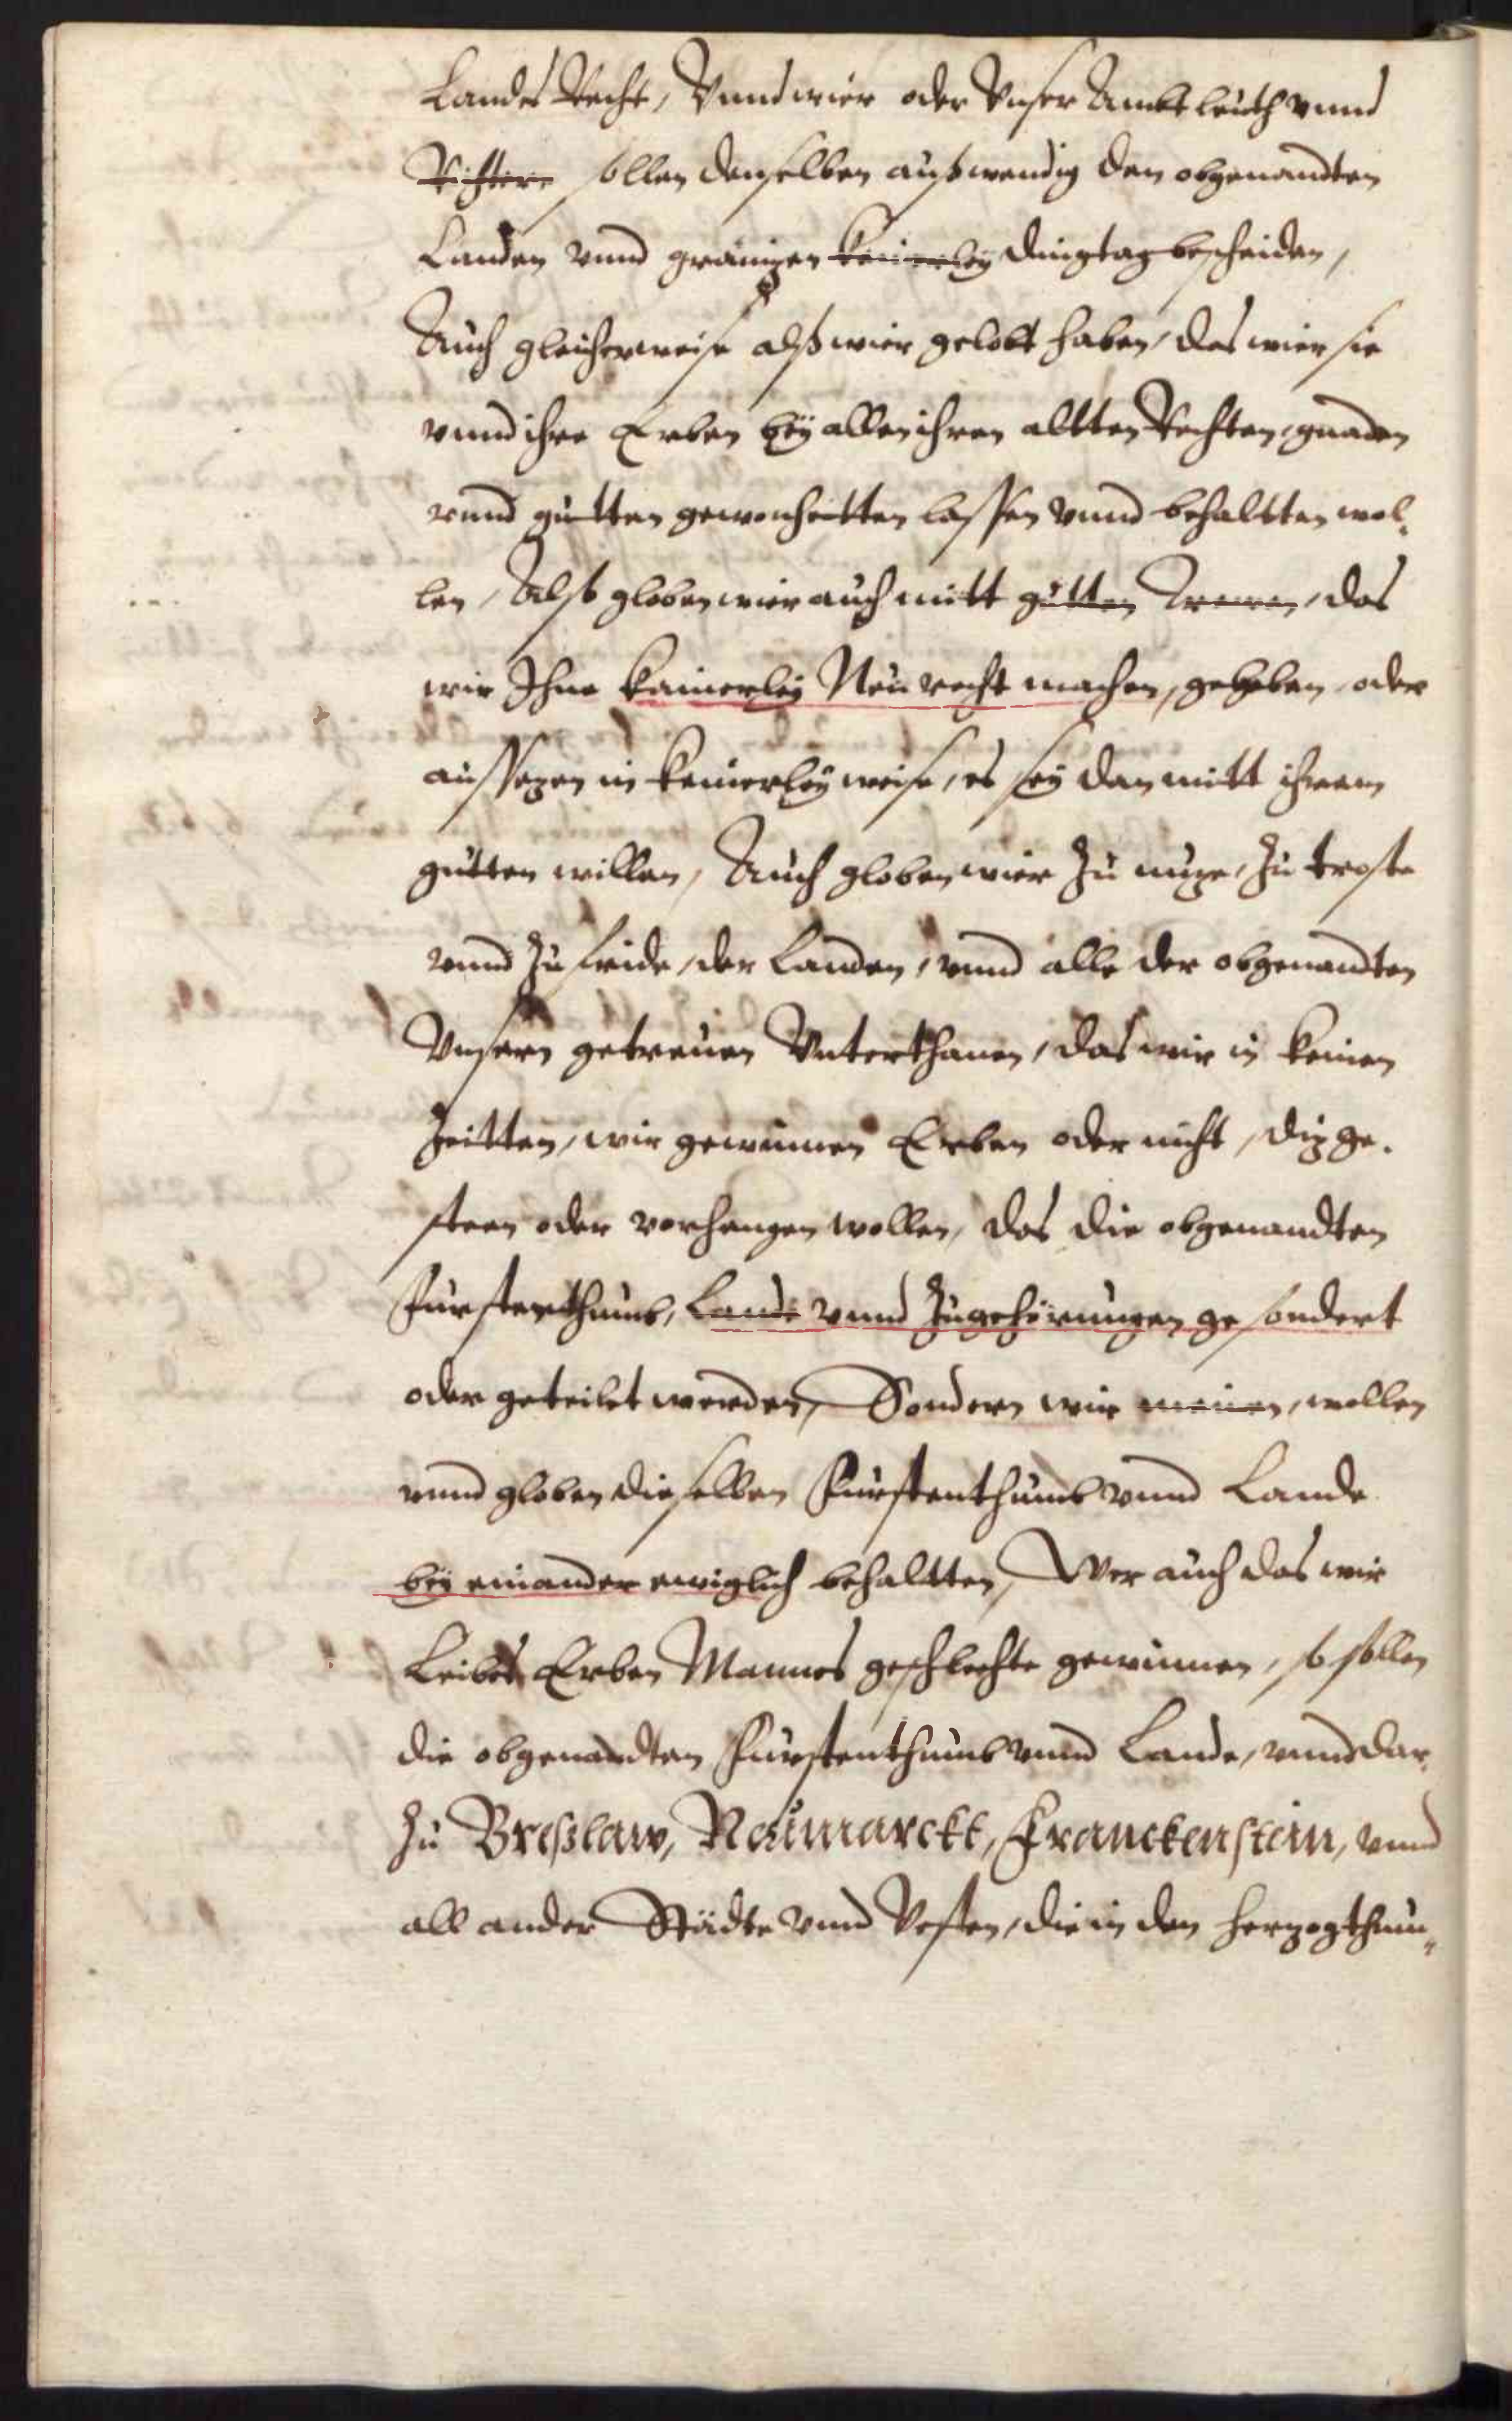 Landes Recht, Vnnd wier oder Vnser Ambtleuth vnnd
Richtere sollen denselben außwendig den obgenandten
Landen vnnd gränizen keinerley dingtag bescheiden,
Auch gleicherweise alß wier gelobt haben, das wier sie
vnnd ihre Erben beÿ allen ihren altten Rechten, gnaden
vnnd gutten gewonheitten lassen vnnd behaltten wol-
len, Alß globen wier auch mitt gutten Trewen, das
wir Ihne kainerleÿ Neu recht machen, geheben, oder
aussezen in keinerleÿ weise, es seÿ dan mitt ihrem
gutten willen, Auch globen wier zu nuze, zu troste
vnnd zu fride, der Landen, vnnd alle der obgenandten
Vnsern getreuen Vnterthanen, das wir in keinen
Zeitten, wir gewinnen Erben oder nicht, diz ge-
steen oder vorhengen wollen, das die obgenandten
Furstenthumb, Lande vnnd Zugehörungen gesondert
oder geteilet werden, Sondern wir meinen, wollen
vnnd globen dieselben Furstenthumb vnnd Lande
beÿ einander ewiglich behaltten, Wer auch das wir
Leibes Erben Mannes geschlechte gewinnen, so sollen
die obgenandten Furstenthumb vnnd Lande, vnnd dar-
zu Breßlaw, Neumarckt, Franckenstein, vnnd
all ander Städte vnnd Vesten, die in den herzogthum-